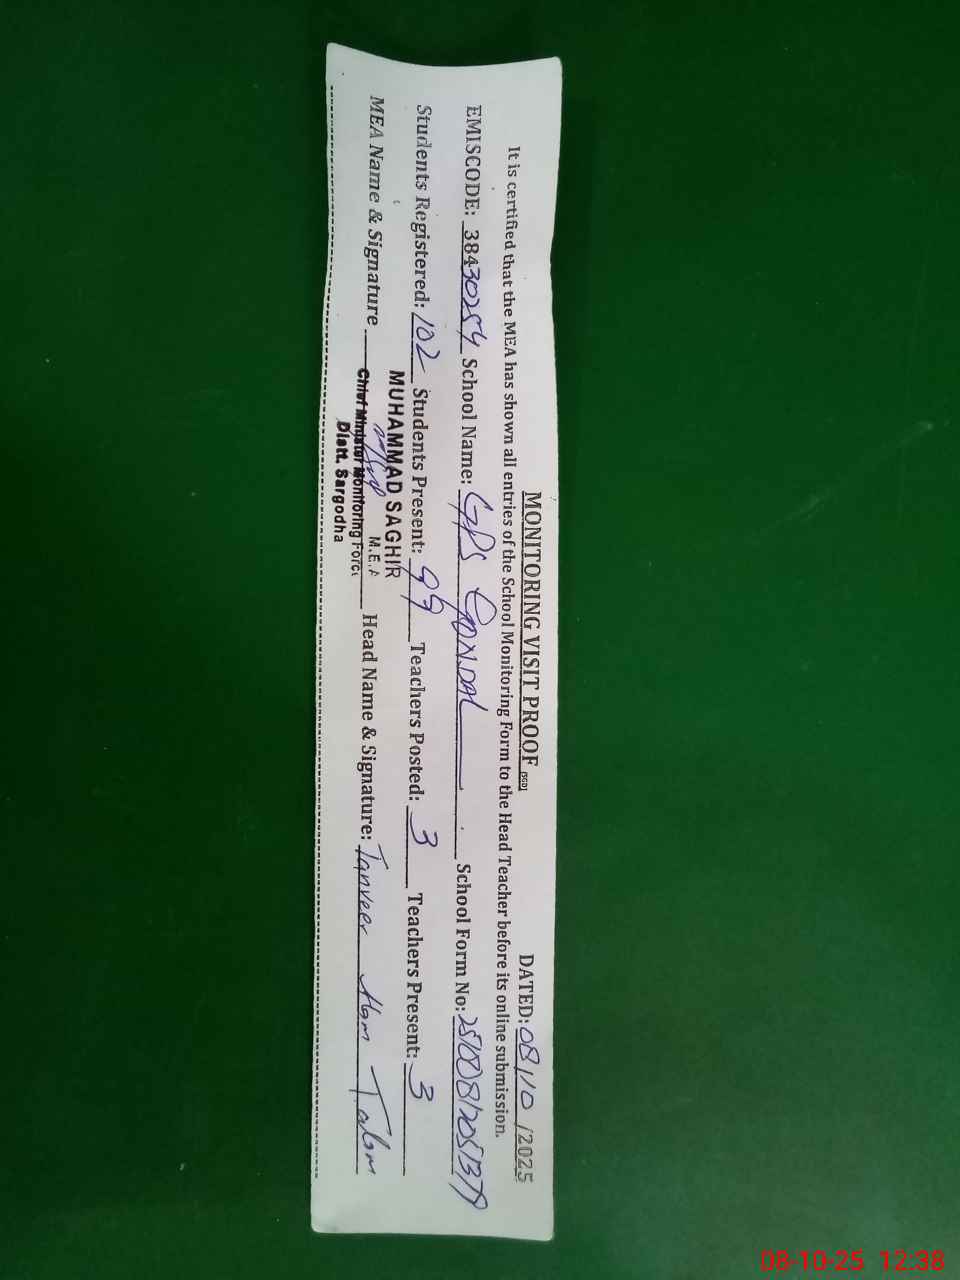 MONITORING VISIT PROOF (SGD)
DATED: 08/10/2025
It is certified that the MEA has shown all entries of the School Monitoring Form to the Head Teacher before its online submission.
EMISCODE: 38430254 School Name: GPS GONDAL School Form No:
Students Registered: 102 Students Present: 99 Teachers Posted: 3 Teachers Present: 3
MUHAMMAD SAGHIR
M.E.A
MEA Name & Signature Head Name & Signature: Tanveer
Chief Minister Monitoring Force
Distt. Sargodha
08-10-25 12:38